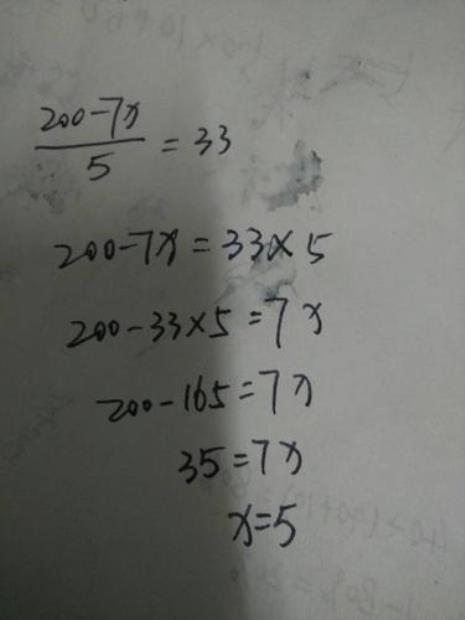 (200-7x)/5 = 33
200-7x = 33×5
200-33×5=7x
200-165=7x
35=7x
x=5